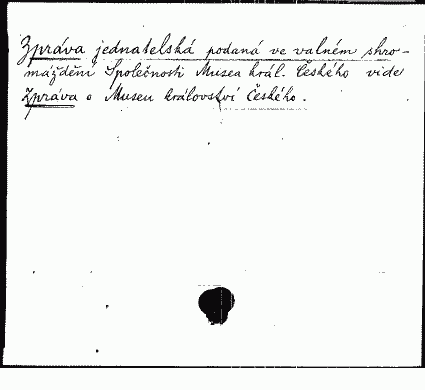 Zpráva jednatelská podaná ve valném shro-
máždění Společnosti Musea král. Českého vide
Zpráva o Museu království Českého.